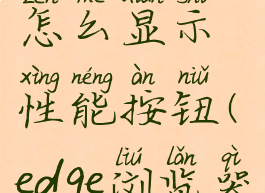 zěn me xiǎn shì
怎么显示
xìng néng àn niǔ
性能按钮(
liú lǎn qì
edge浏览器